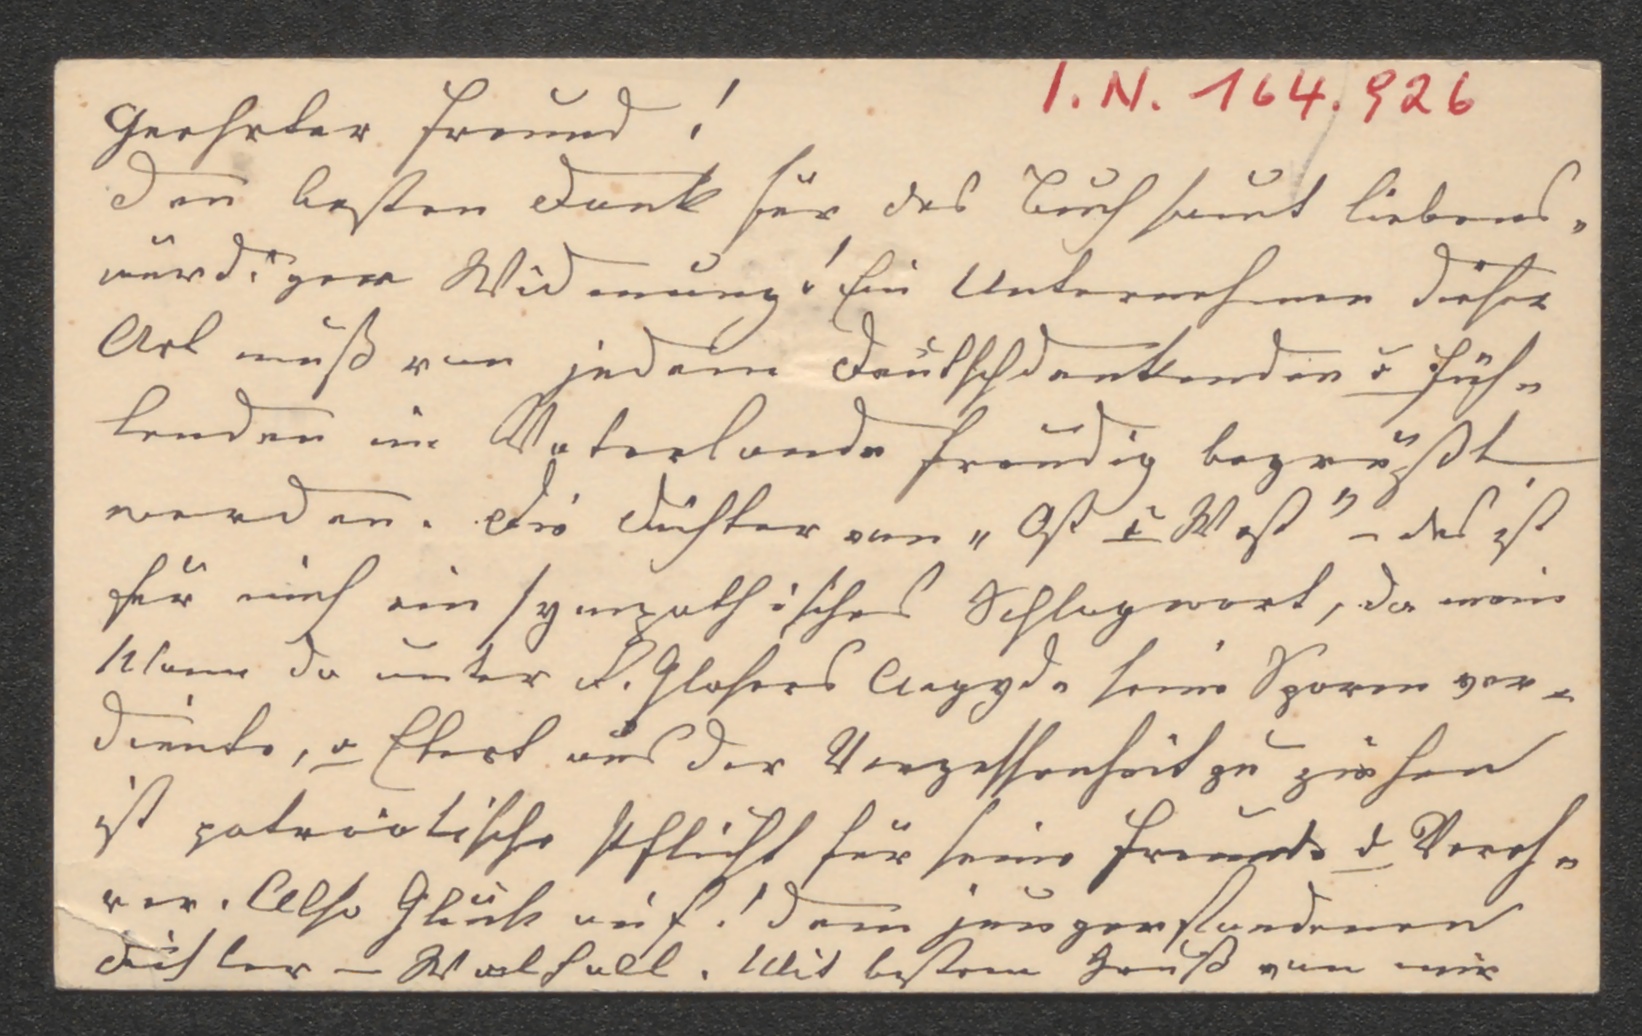 I.N. 164.926
Geehrter Freund!
Den besten Dank für das Buch samt liebens-
würdiger Widmung! Ein Unternehmen dieser
Art muß von jedem Deutschdenkenden u Füh-
lenden im Vaterlande freudig begrüßt
werden. Die Dichter von „Ost u West" – das ist
für mich ein sympathisches Schlagwort, da mein
Mann da unter R. Glasers Aegyde seine Sporen ver-
diente, u Ebert aus der Vergessenheit zu ziehen
ist patriotische Pflicht für seine Freunde u Vereh-
rer. Also Glück auf! dem jungerstandenen
Dichter – Walhall. Mit bestem Gruß von mir